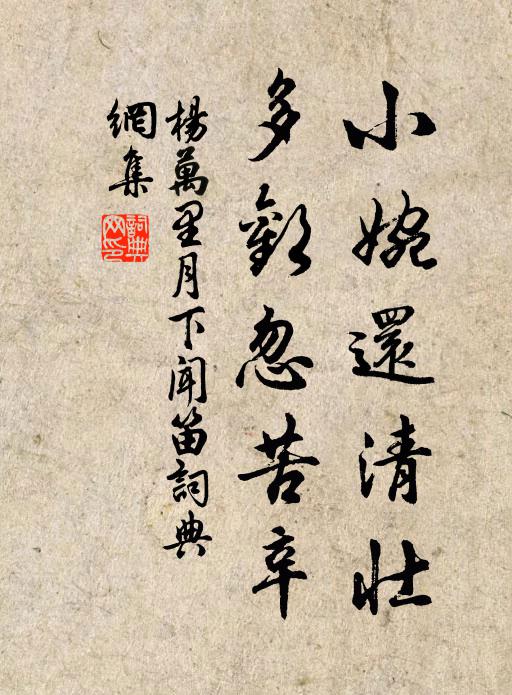 小婉還清壯
多歡忽苦辛
楊萬里月下聞笛詞典
網集
詞典網印